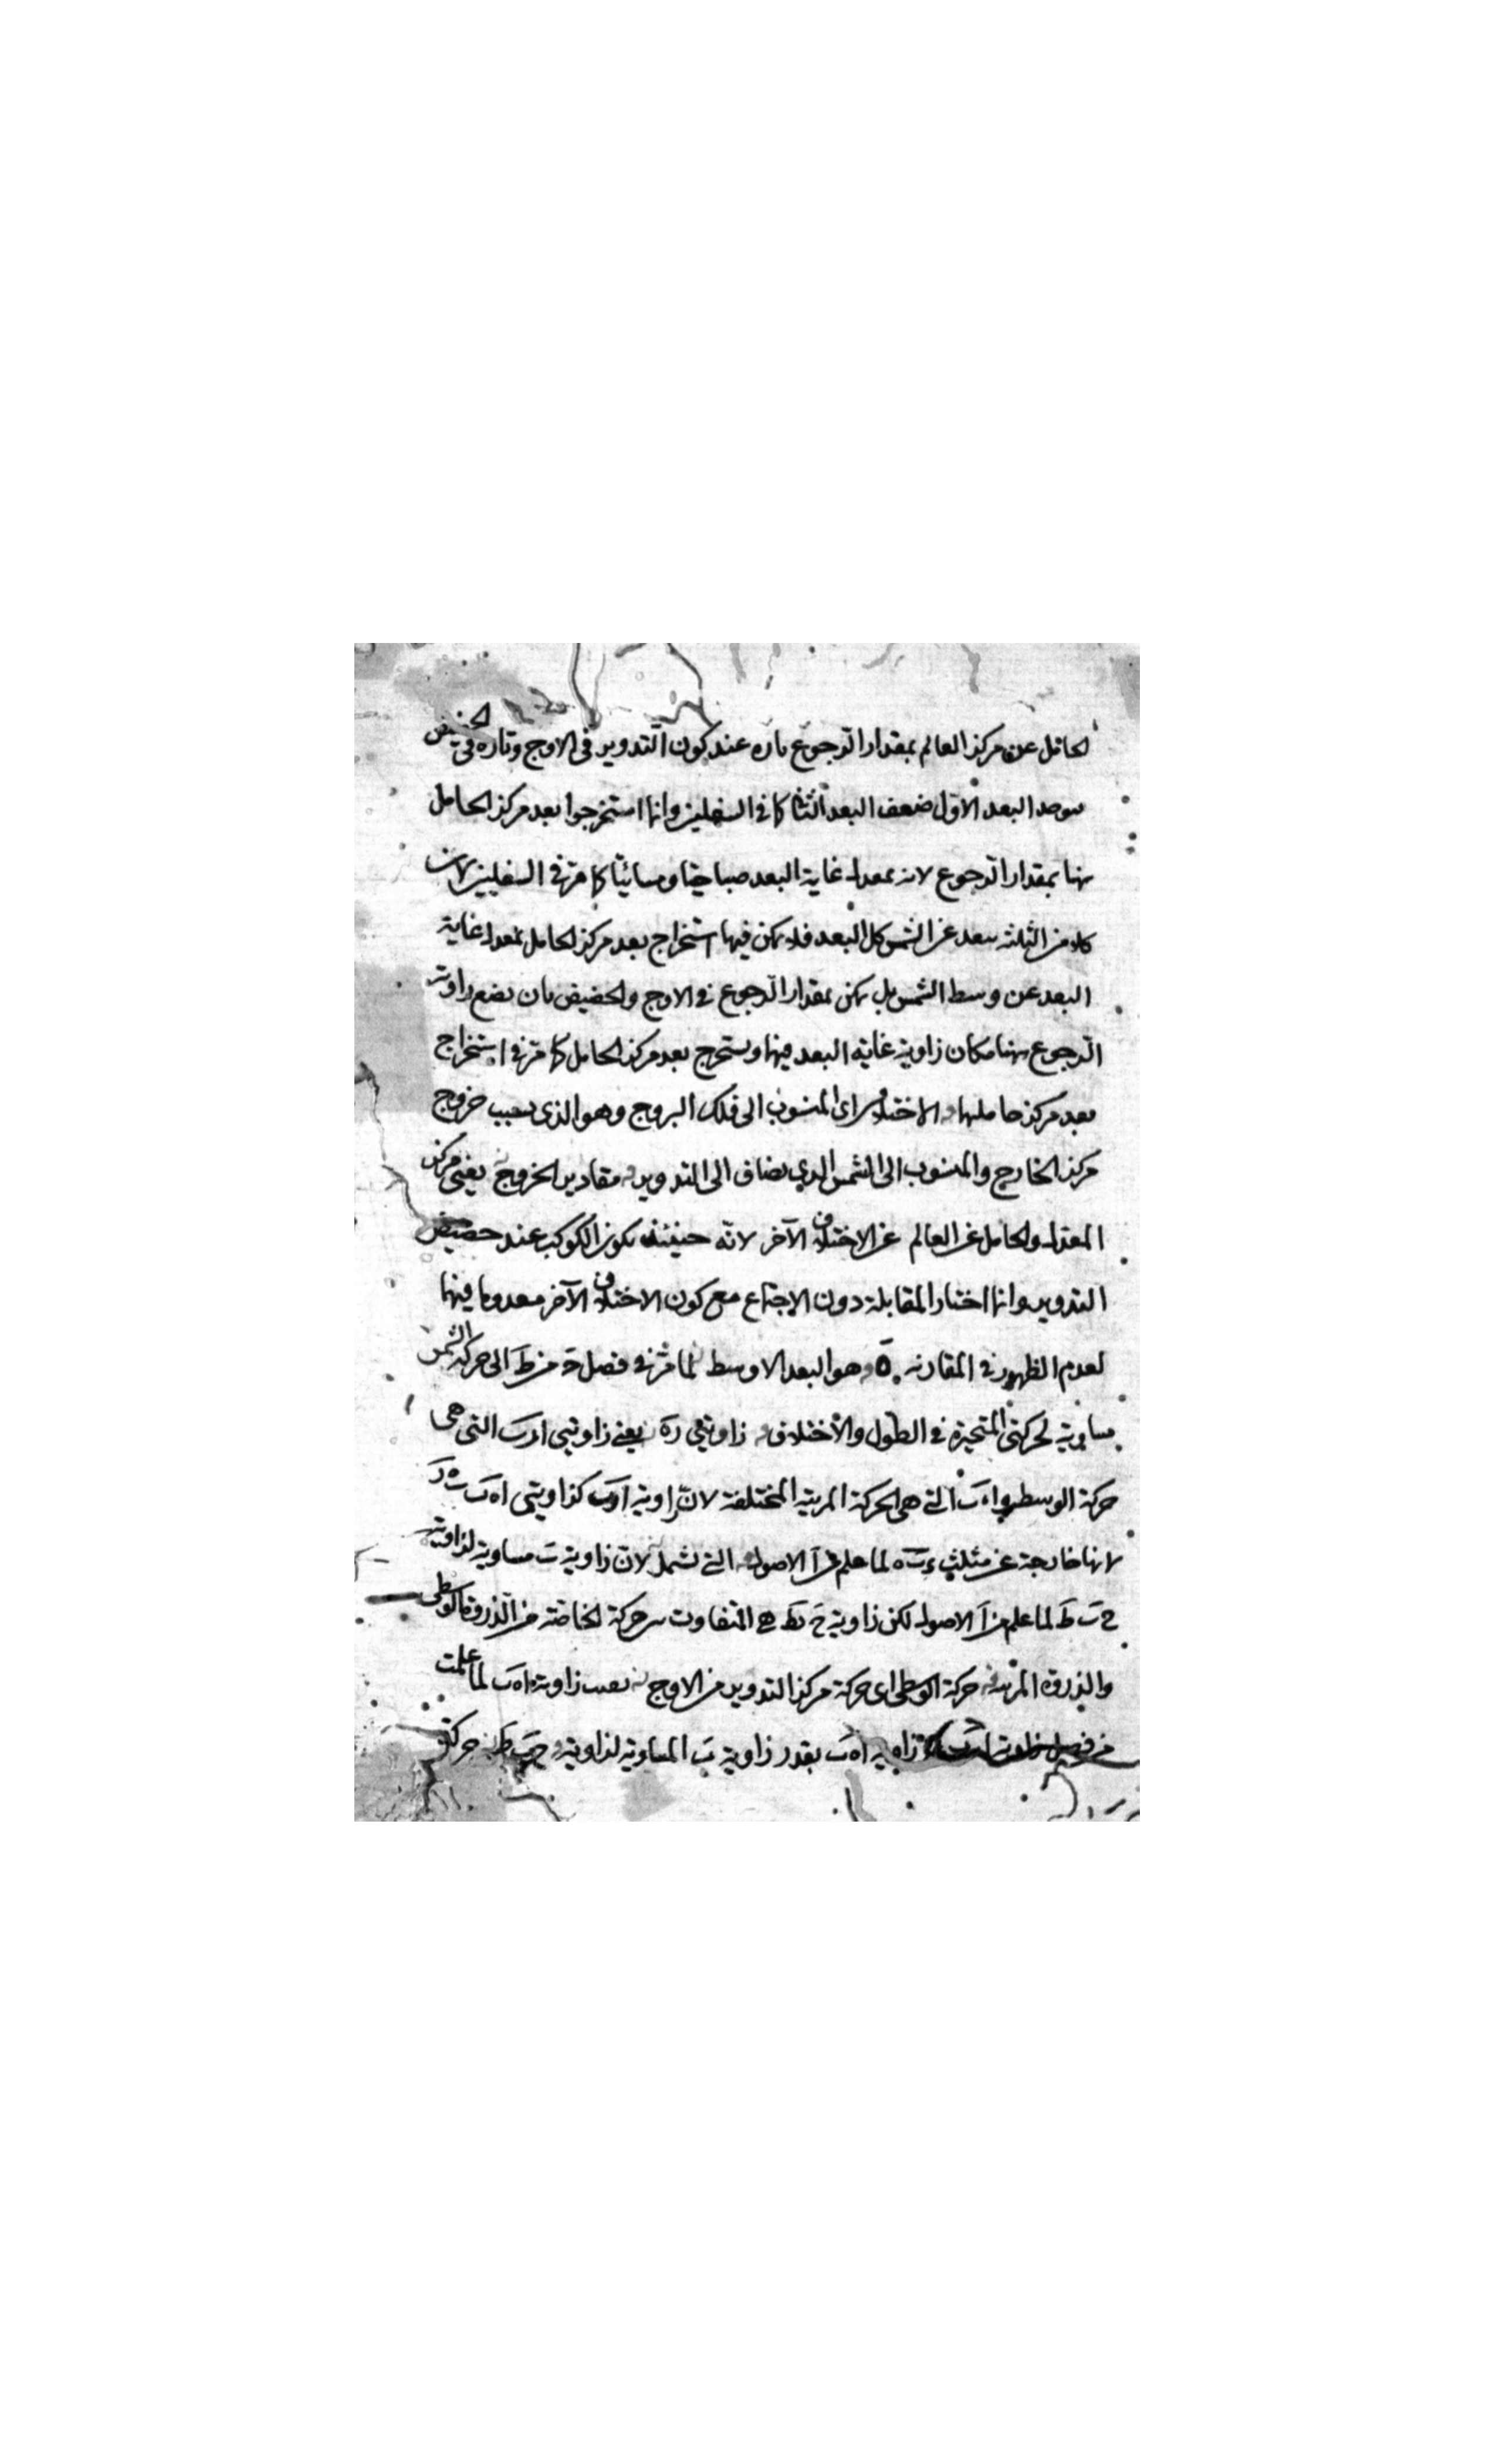 الحامل عن مركز العالم بمقدار الرجوع تاره عند كون التدوير فى الاوج وتاره فى الحضيض
البعد الاول ضعف البعد الثانى كما فى السفليين وانما استخرجوا بعد مركز الحامل
ههنا بمقدار الرجوع لا بمقدار غاية البعد صباحيا ومسائيا كما مر فى السفليين لان
كلا من الثلثه يبعد عن الشمس كل البعد فلا يمكن فيها استخراج بعد مركز الحامل بمقدار غاية
البعد عن وسط الشمس بل يمكن بمقدار الرجوع فى الاوج والحضيض بان يضع زاوية
الرجوع ههنا مكان زاوية غاية البعد فيهما ويستخرج بعد مركز الحامل كما مر فى استخراج
بعد مركز حامليهما الاختلاف اى المنسوب الى فلك البروج وهو الذى بسبب خروج
مركز الخارج والمنسوب الى الشمس الذي يضاف الى التدوير مقادير الخروج يعنى مركز
المعدل والحامل عن العالم عن الاختلاف الآخر لانه حينئذ يكون الكوكب عند حضيض
التدوير وانما اختار المقابلة دون الاجتماع مع كون الاختلاف الآخر معدوما فيهما
لعدم الظهور فى المقارنه ه وهو البعد الاوسط لما مر فى فصل من ط الى حركة الشمس
مساوية لحركتى المتحيرة فى الطول والاختلاف زاويتى ر ه يعنى زاويتى ا ر ب التى هى
حركة الوسط و ا ه ب التى هى الحركة المرئية المختلفة لان زاوية ا ر ب كزاويتى ا ه ب ه ب ر
لانها خارجة عن مثلث ر ب ه لما علم من ا الاصول التى تشمل لان زاوية ب مساوية لزاوية
ح ب ط لما علم من ا الاصول لكن زاوية ح ب ط هى التفاوت بين حركة الخاصة من الذروة الوسطى
والذروة المرئية حركة الوسطى اى حركة مركز التدوير من الاوج زاوية ا ه ب لما علمت
زاوية ا ه ب بقدر زاوية ب المساوية لزاوية ح ب ط حركة